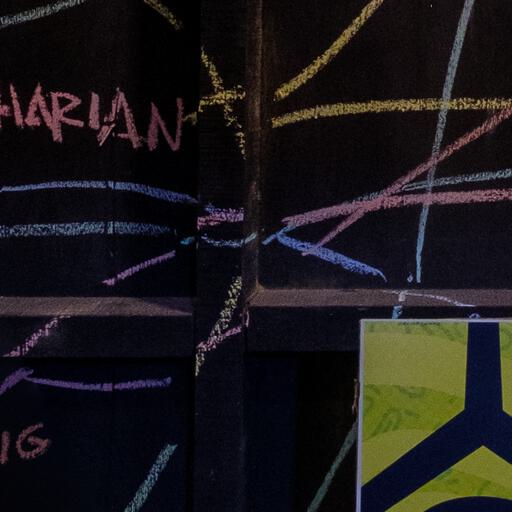 HARIAN
IG